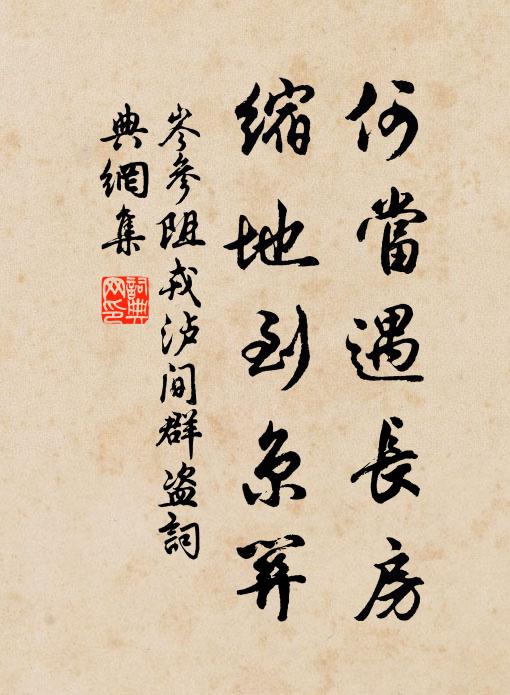 何當遇長房
縮地到京關
岑參阻戎泸間群盗詞
典網集
詞典
网印